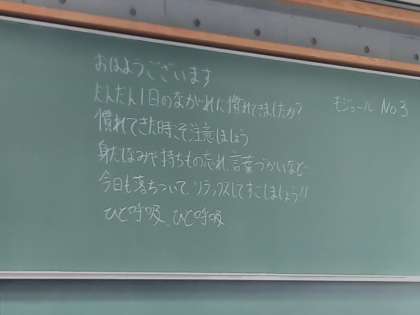 おはようございます
だんだん1日のながれに慣れてきましたか?
モジュール No3
慣れてきた時こそ注意しましょう
身だしなみや持ちもの忘れ、言葉づかいなど
今日も落ちついて、リラックスしてすごしましょう!!
ひと呼吸、ひと呼吸